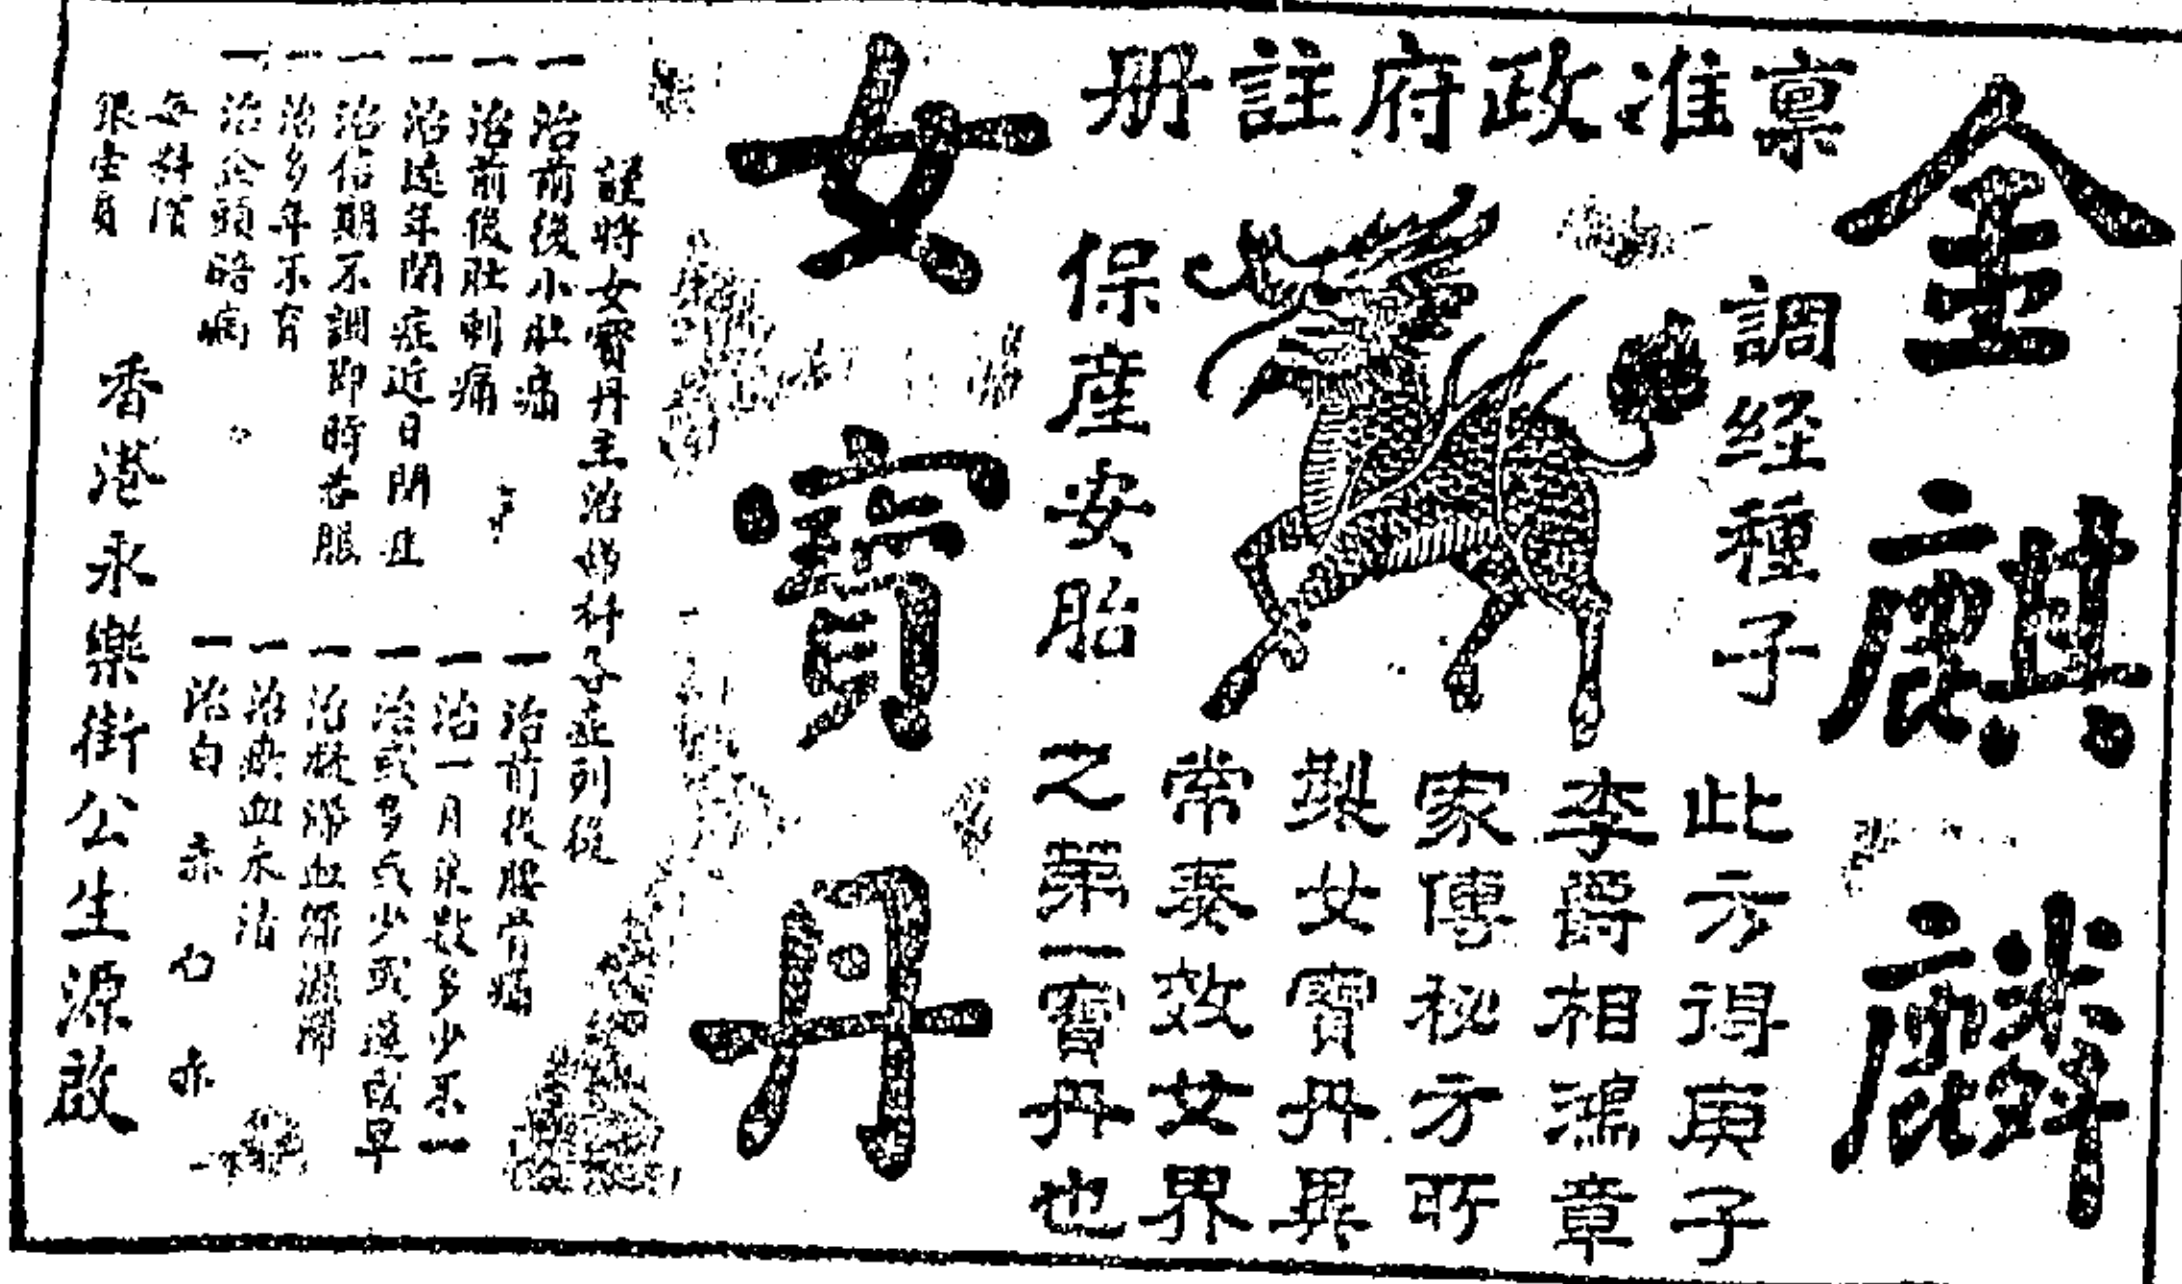 金麒麟
稟准政府註冊
調經種子
保產安胎
此方得庚子
李爵相鴻章
家傳秘方所
製女寶丹異
常奏效女界
之第一寶丹也
女寶丹
謹將女寶丹主治婦科各症列後
一治前後小肚痛
一治前後肚刺痛
一治遠年閉症近日閉症
一治信期不調即時若服
一治多年不育
一治 頭暗病
一治前後腰骨痛
一治一月來數多少不一
一治或多或少或遲或早
一治 血
一治 血
一治白
每料濱
銀壹員
香港永樂街公生源啟